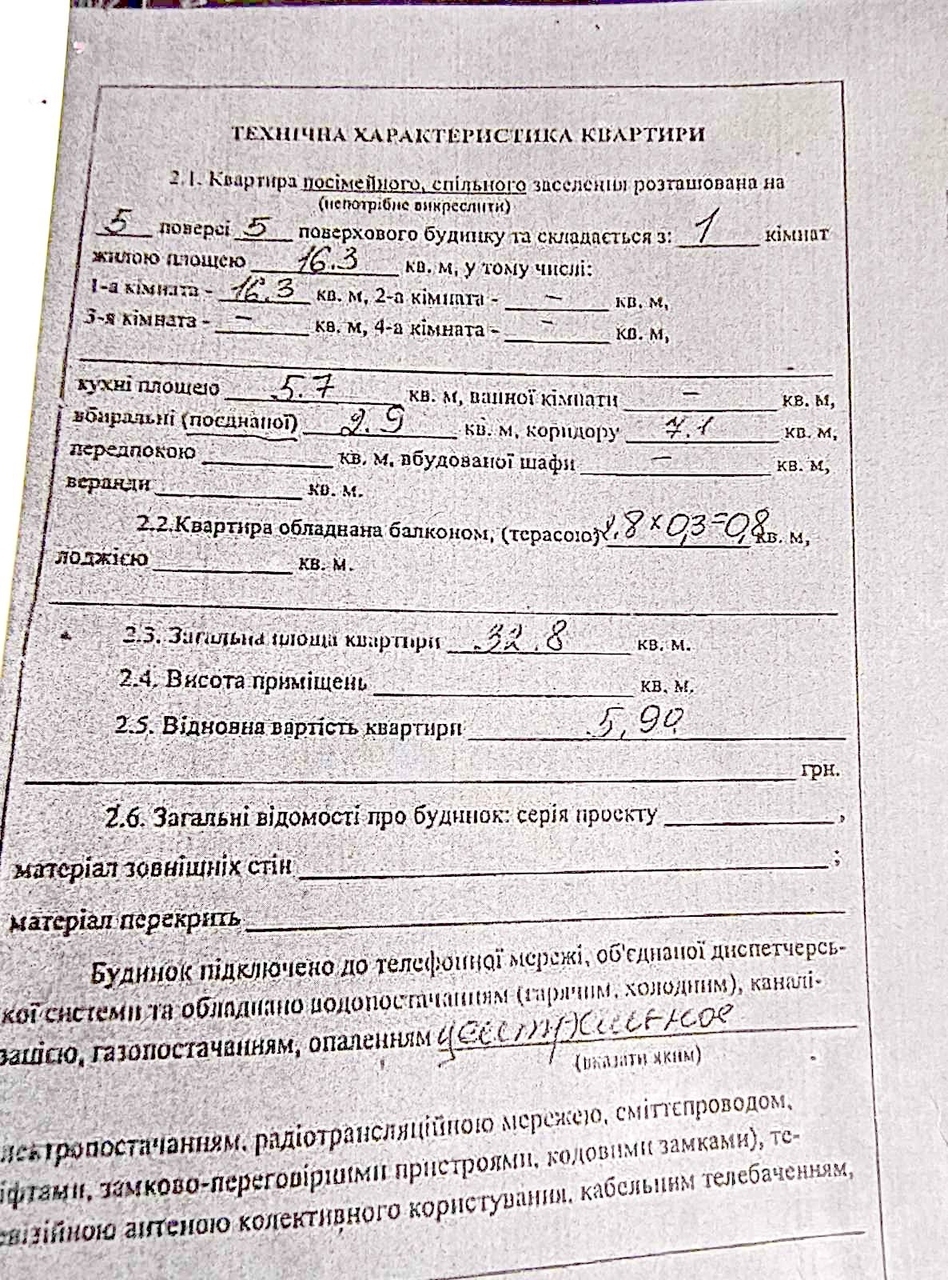 ТЕХНІЧНА ХАРАКТЕРИСТИКА КВАРТИРИ
2.1. Квартира посімейного, спільного заселення розташована на
(непотрібне викреслити)
5 поверсі 5 поверхового будинку та складається з: 1 кімнат
жилою площею 16.3 кв. м, у тому числі:
1-а кімната - 16.3 кв. м, 2-а кімната - — кв. м,
3-я кімната - — кв. м, 4-а кімната - — кв. м,
кухні площею 5.7 кв. м, ванної кімнати — кв. м,
вбиральні (поєднаної) 2.9 кв. м, коридору 7.1 кв. м,
передпокою кв. м, вбудованої шафи — кв. м,
веранди кв. м.
2.2.Квартира обладнана балконом, (терасою) 2.8 × 0,3=0,8 кв. м,
лоджією кв. м.
2.3. Загальна площа квартири 32.8 кв. м.
2.4. Висота приміщень кв. м.
2.5. Відновна вартість квартири 5,90
грн.
2.6. Загальні відомості про будинок: серія проекту ,
матеріал зовнішніх стін ;
матеріал перекрить
Будинок підключено до телефонної мережі, об'єднаної диспетчерсь-
кої системи та обладнано водопостачанням (гарячим, холодним), каналі-
зацією, газопостачанням, опаленням центральное
(вказати яким)
лектропостачанням, радіотрансляційною мережею, сміттєпроводом,
іфтами, замково-переговірними пристроями, кодовими замками), те-
евізійною антеною колективного користування, кабельним телебаченням,